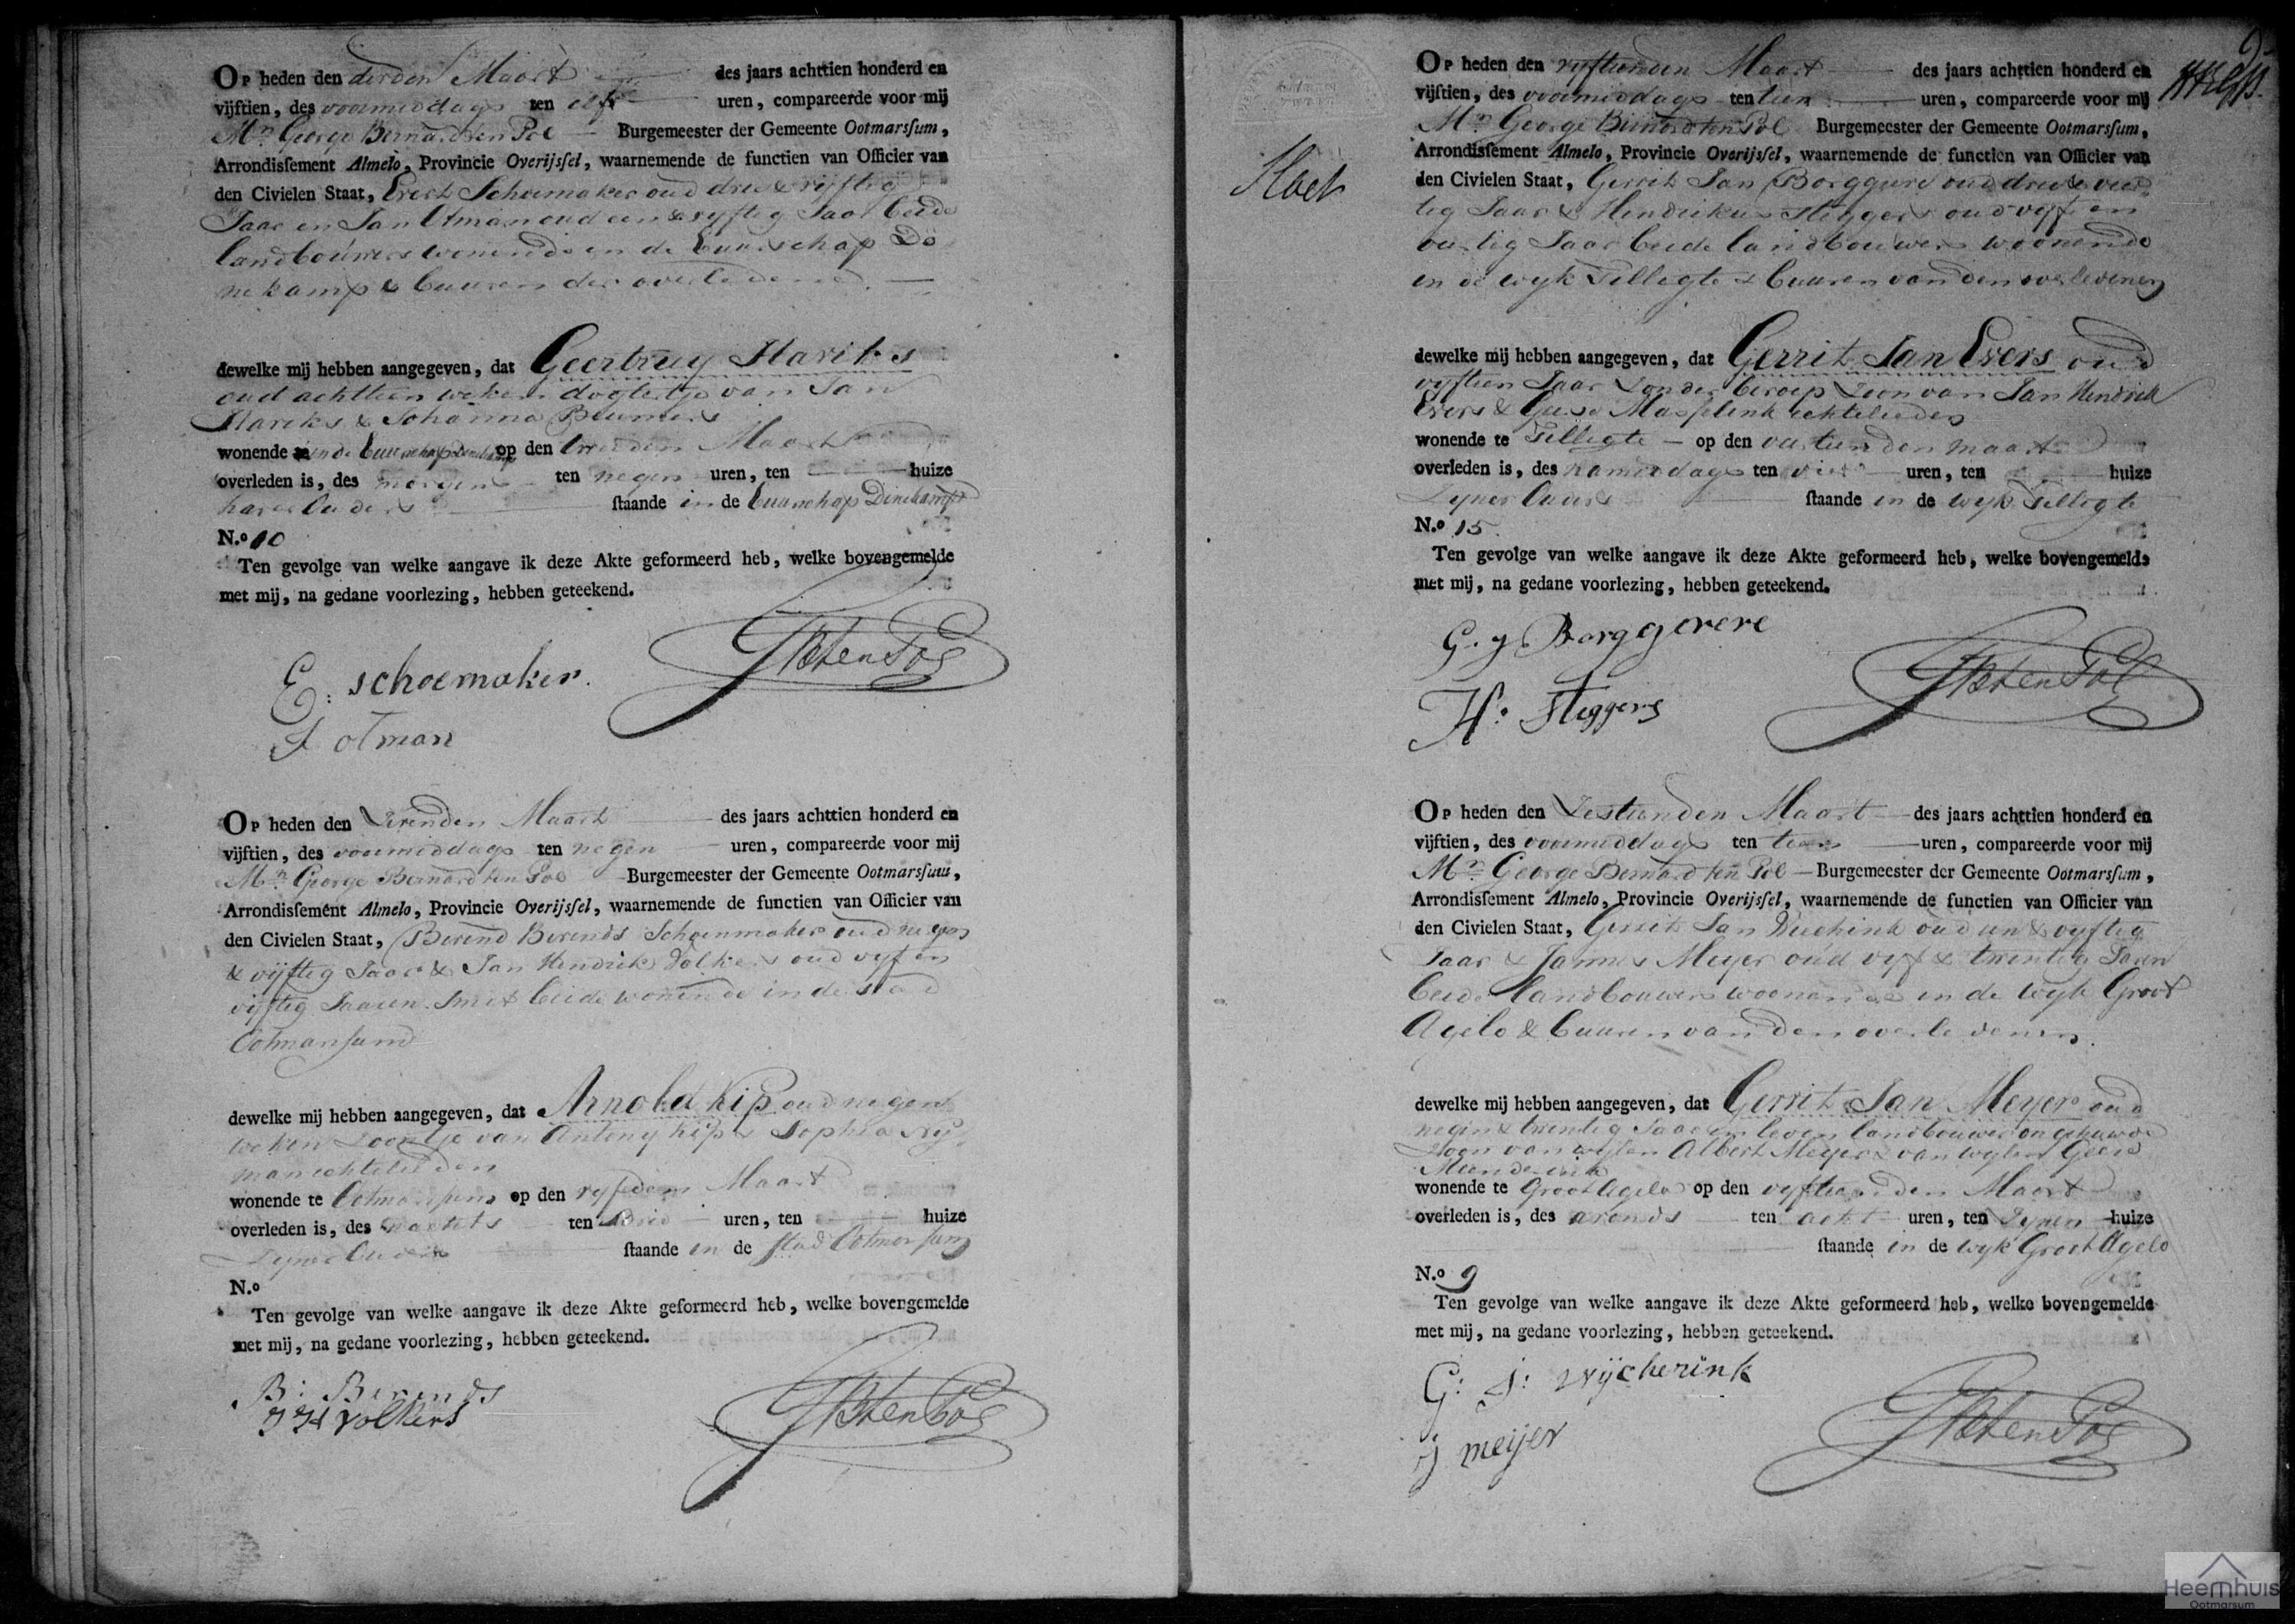 Op heden den derden Maart des jaars achttien honderd en
vijftien, des voormiddags ten elf uren, compareerde voor mij
Mr. George Bernard ten Pol Burgemeester der Gemeente Ootmarssum,
Arrondissement Almelo, Provincie Overijssel, waarnemende de functien van Officier van
den Civielen Staat, Evert Schoemaker oud drie & vyftig
Jaar en Jan Otman oud een & vyftig Jaar beide
landbouwers wonende in de buurschap De
nekamp & buuren der overledene
dewelke mij hebben aangegeven, dat Geertruy Hariks
oud achttien weken dogtertje van Jan
Hariks & Johanna
wonende in de buurschap Denekamp op den tweeden Maart
overleden is, des morgens ten negen uren, ten huize
harer Ouders staande in de buurschap Denekamp
N.o 10
Ten gevolge van welke aangave ik deze Akte geformeerd heb, welke bovengemelde
met mij, na gedane voorlezing, hebben geteekend.
E: schoemaker. GBtenPol
J otman
Op heden den zevenden Maart des jaars achttien honderd en
vijftien, des voormiddags ten negen uren, compareerde voor mij
Mr. George Bernard ten Pol Burgemeester der Gemeente Ootmarssum,
Arrondissement Almelo, Provincie Overijssel, waarnemende de functien van Officier van
den Civielen Staat, Berend Berends Schoenmaker oud negen
& vijftig Jaar & Jan Hendrik Volkers oud vyf en
vijftig Jaaren Smit beide wonende in de stad
Ootmarsum
dewelke mij hebben aangegeven, dat Arnold Kip oud negen
weken zoontje van Antony Kip & Sophia Ny
man echtelieden
wonende te Ootmarsum op den vyfden Maart
overleden is, des nachts ten drie uren, ten huize
Zyner Ouders staande in de stad Ootmarsum
N.o
Ten gevolge van welke aangave ik deze Akte geformeerd heb, welke bovengemelde
met mij, na gedane voorlezing, hebben geteekend.
B: Berends
J H Volkers GBtenPol
9
Op heden den vyftienden Maart des jaars achttien honderd en
vijftien, des voormiddags ten tien uren, compareerde voor mij
Mr. George Bernard ten Pol Burgemeester der Gemeente Ootmarssum,
Arrondissement Almelo, Provincie Overijssel, waarnemende de functien van Officier van
den Civielen Staat, Gerrit Jan Borggreve oud drie & veer
tig Jaar & Hendrikus Steggers oud vyf en
veertig Jaar beide landbouwers woonende
in de wyk Tilligte & buuren van den overledenen
dewelke mij hebben aangegeven, dat Gerrit Jan Evers oud
vyftien Jaar zonder beroep Zoon van Jan Hendrik
Evers & echtelieden
wonende te Tilligte op den veertienden maart
overleden is, des namiddags ten vier uren, ten huize
Zyner Ouders staande in de wyk Tilligte
N.o 15
Ten gevolge van welke aangave ik deze Akte geformeerd heb, welke bovengemelde
met mij, na gedane voorlezing, hebben geteekend.
G. J Borggerere
H: Steggers GBtenPol
Op heden den Zestienden Maart des jaars achttien honderd en
vijftien, des voormiddags ten tien uren, compareerde voor mij
Mr. George Bernard ten Pol Burgemeester der Gemeente Ootmarssum,
Arrondissement Almelo, Provincie Overijssel, waarnemende de functien van Officier van
den Civielen Staat, Gerrit Jan Wiecherink oud een & vyftig
Jaar & Jannes Meyer oud vyf & twintig Jaren
beide landbouwers woonende in de wyk Groot
Agelo & buuren van den overledenen
dewelke mij hebben aangegeven, dat Gerrit Jan Meyer oud
negen & twintig Jaar in leven landbouwer ongehuwde
Zoon van wylen Albert Meyer & van wylen Geers
Meinderink
wonende te Groot Agelo op den vyftienden Maart
overleden is, des avonds ten acht uren, ten Zynen huize
staande in de wyk Groot Agelo
N.o 9
Ten gevolge van welke aangave ik deze Akte geformeerd heb, welke bovengemelde
met mij, na gedane voorlezing, hebben geteekend.
G: J: wycherink
J meijer GBtenPol
Heemhuis
Ootmarsum